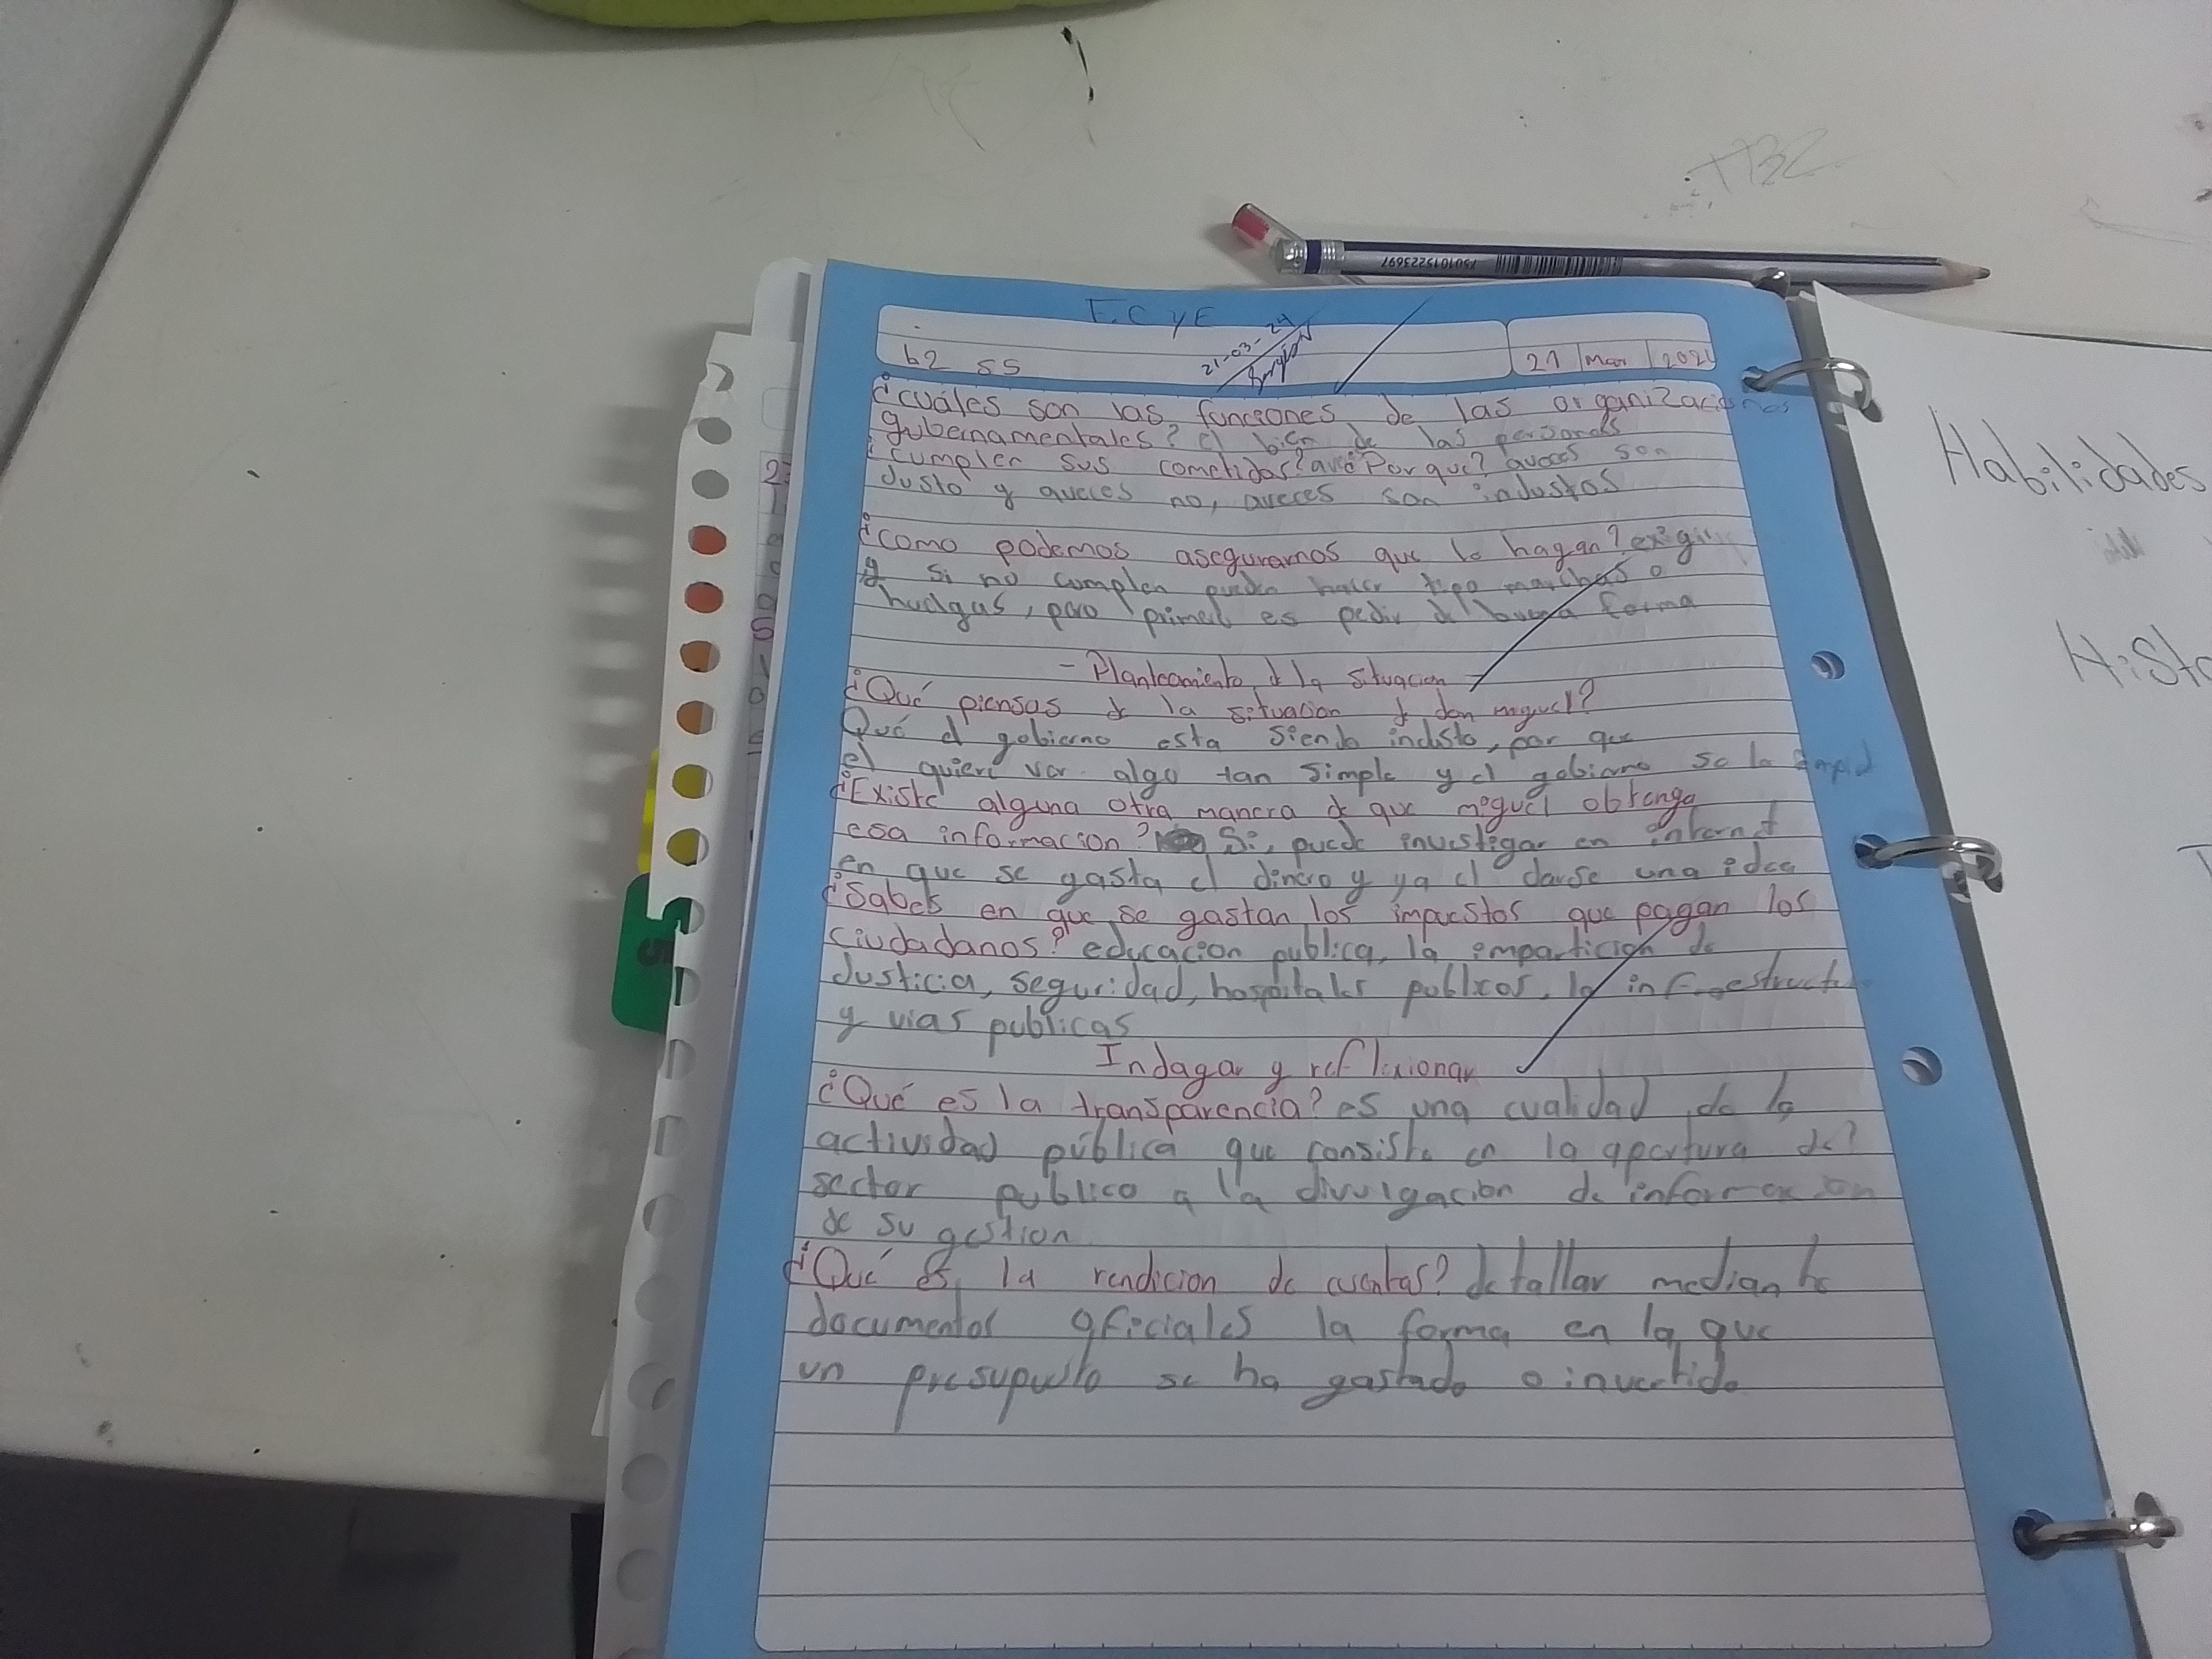 F.C y E
b2 S5
21-03-24
21 Mar 202
¿cuáles son las funciones de las organizaciones
gubernamentales? el bien de las personas
¿cumplen sus cometidos? Por que? aveces son
Justo y aveces no, aveces son industos
¿como podemos asegurarnos que lo hagan? exigir
y si no cumplen pueden hacer tipo marchas o
huelgas, pero primero es pedir de buena forma
- Planteamiento de la situacion -
¿Qué piensas de la situacion de don miguel?
Qué el gobierno esta siendo industo, por que
el quiere ver algo tan simple y el gobierno se lo impid
¿Existe alguna otra manera de que miguel obtenga
esa informacion? Si, puede investigar en internet
en que se gasta el dinero y ya el darse una idea
¿Sabes en que se gastan los impuestos que pagan los
ciudadanos? educacion publica, la imparticion de
Justicia, seguridad, hospitales publicos, la infraestructu
y vias publicas
Indagar y reflexionar
¿Qué es la transparencia? es una cualidad de la
actividad pública que consiste en la apertura del
sector publico a la divulgacion de informacion
de su gestion
¿Qué es la rendicion de cuentas? detallar mediante
documentos oficiales la forma en la que
un presupuesto se ha gastado o invertido
Habilidades
Histo
7501015223697
TBC